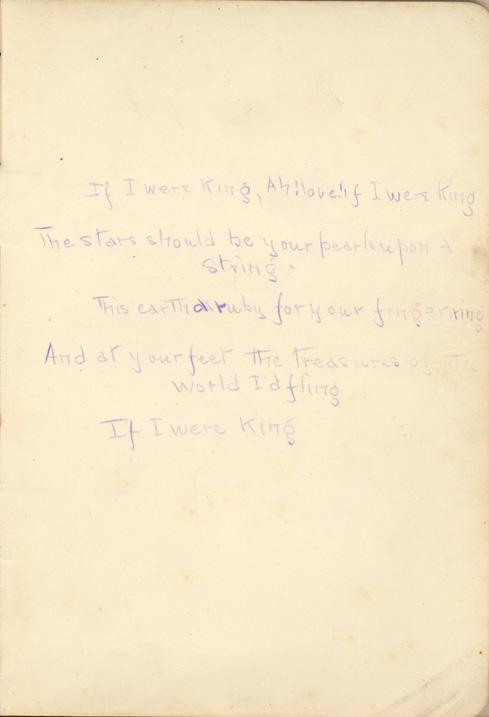 If I were King, Ah! love! if I were King
The stars should be your pearls upon a
string
This earth a ruby for your finger ring
And at your feet the treasures of the
world I'd fling
If I were King